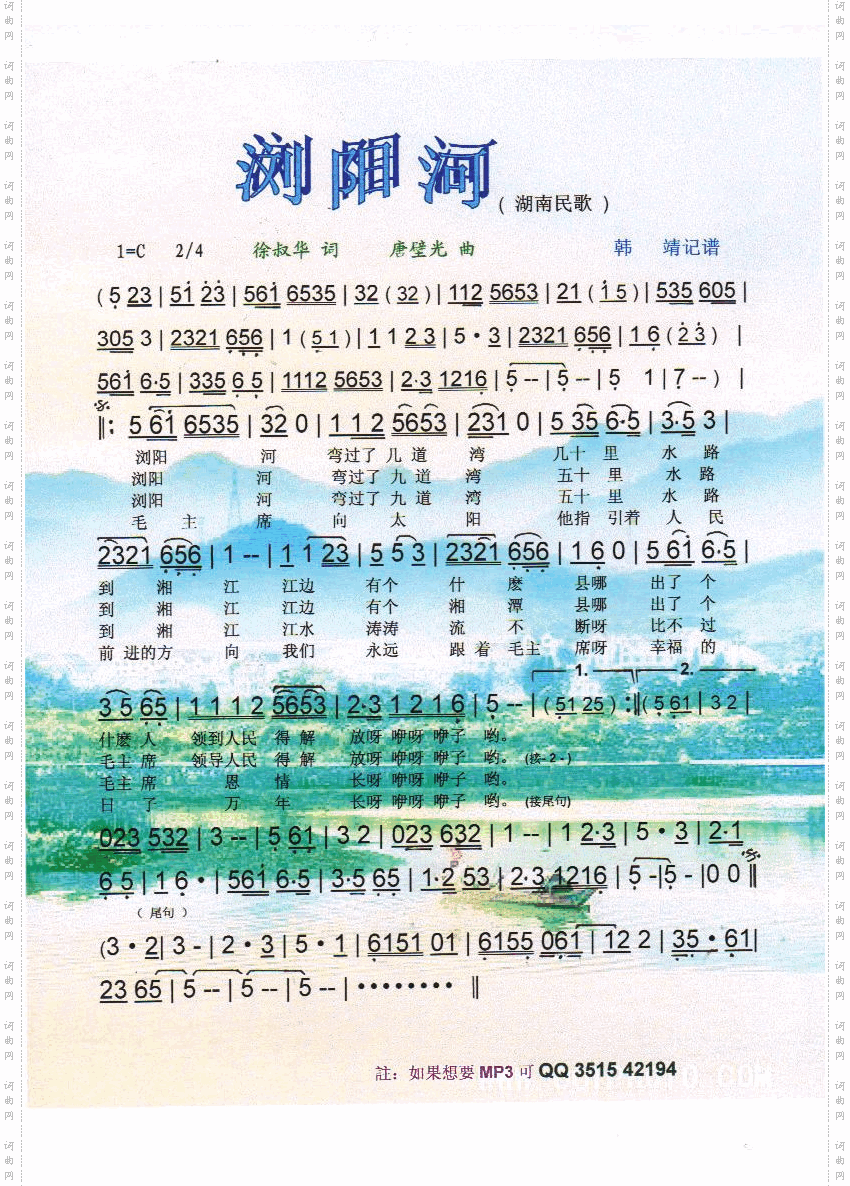 浏阳河
( 湖南民歌 )
1=C 2/4 徐叔华 词 唐璧光 曲 韩 靖记谱
( 5 23 | 51 23 | 561 6535 | 32 ( 32 ) | 112 5653 | 21 ( 1 5 ) | 535 605 |
305 3 | 2321 656 | 1 ( 5 1 ) | 1 1 2 3 | 5 · 3 | 2321 656 | 1 6 ( 2 3 ) |
561 6·5 | 335 6 5 | 1112 5653 | 2·3 1216 | 5 -- | 5 -- | 5 1 | 7 -- ) |
‖: 5 61 6535 | 32 0 | 1 1 2 5653 | 231 0 | 5 35 6·5 | 3·5 3 |
浏阳 河 弯过了 几 道 湾 几十 里 水 路
浏阳 河 弯过了 九 道 湾 五十 里 水 路
浏阳 河 弯过了 九 道 湾 五十 里 水 路
毛 主 席 向 太 阳 他指 引着 人 民
2321 656 | 1 -- | 1 1 23 | 5 5 3 | 2321 656 | 1 6 0 | 5 61 6·5 |
到 湘 江 江边 有个 什 麽 县哪 出了 个
到 湘 江 江边 有个 湘 潭 县哪 出了 个
到 湘 江 江水 涛涛 流 不 断呀 比不 过
前 进的方 向 我们 永远 跟 着 毛主 席呀 幸福 的
1. 2.
3 5 65 | 1 1 1 2 5653 | 2·3 1 2 1 6 | 5 -- | ( 51 25 ) :‖ ( 5 61 | 3 2 |
什麽 人 领到人民 得 解 放呀 咿呀 咿子 哟。
毛主 席 领导人民 得 解 放呀 咿呀 咿子 哟。 (接- 2 - )
毛主 席 恩 情 长呀 咿呀 咿子 哟。
日 了 万 年 长呀 咿呀 咿子 哟。 (接尾句)
023 532 | 3 -- | 5 61 | 3 2 | 023 632 | 1 -- | 1 2·3 | 5 · 3 | 2·1
6 5 | 1 6 · | 561 6·5 | 3·5 65 | 1·2 53 | 2·3 1216 | 5 -|5 - |0 0 ‖
( 尾句 )
(3 · 2| 3 - | 2 · 3 | 5 · 1 | 6151 01 | 6155 061 | 12 2 | 35 · 61|
23 65 | 5 -- | 5 -- | 5 -- | ········ ‖
註：如果想要 MP3 可 QQ 3515 42194